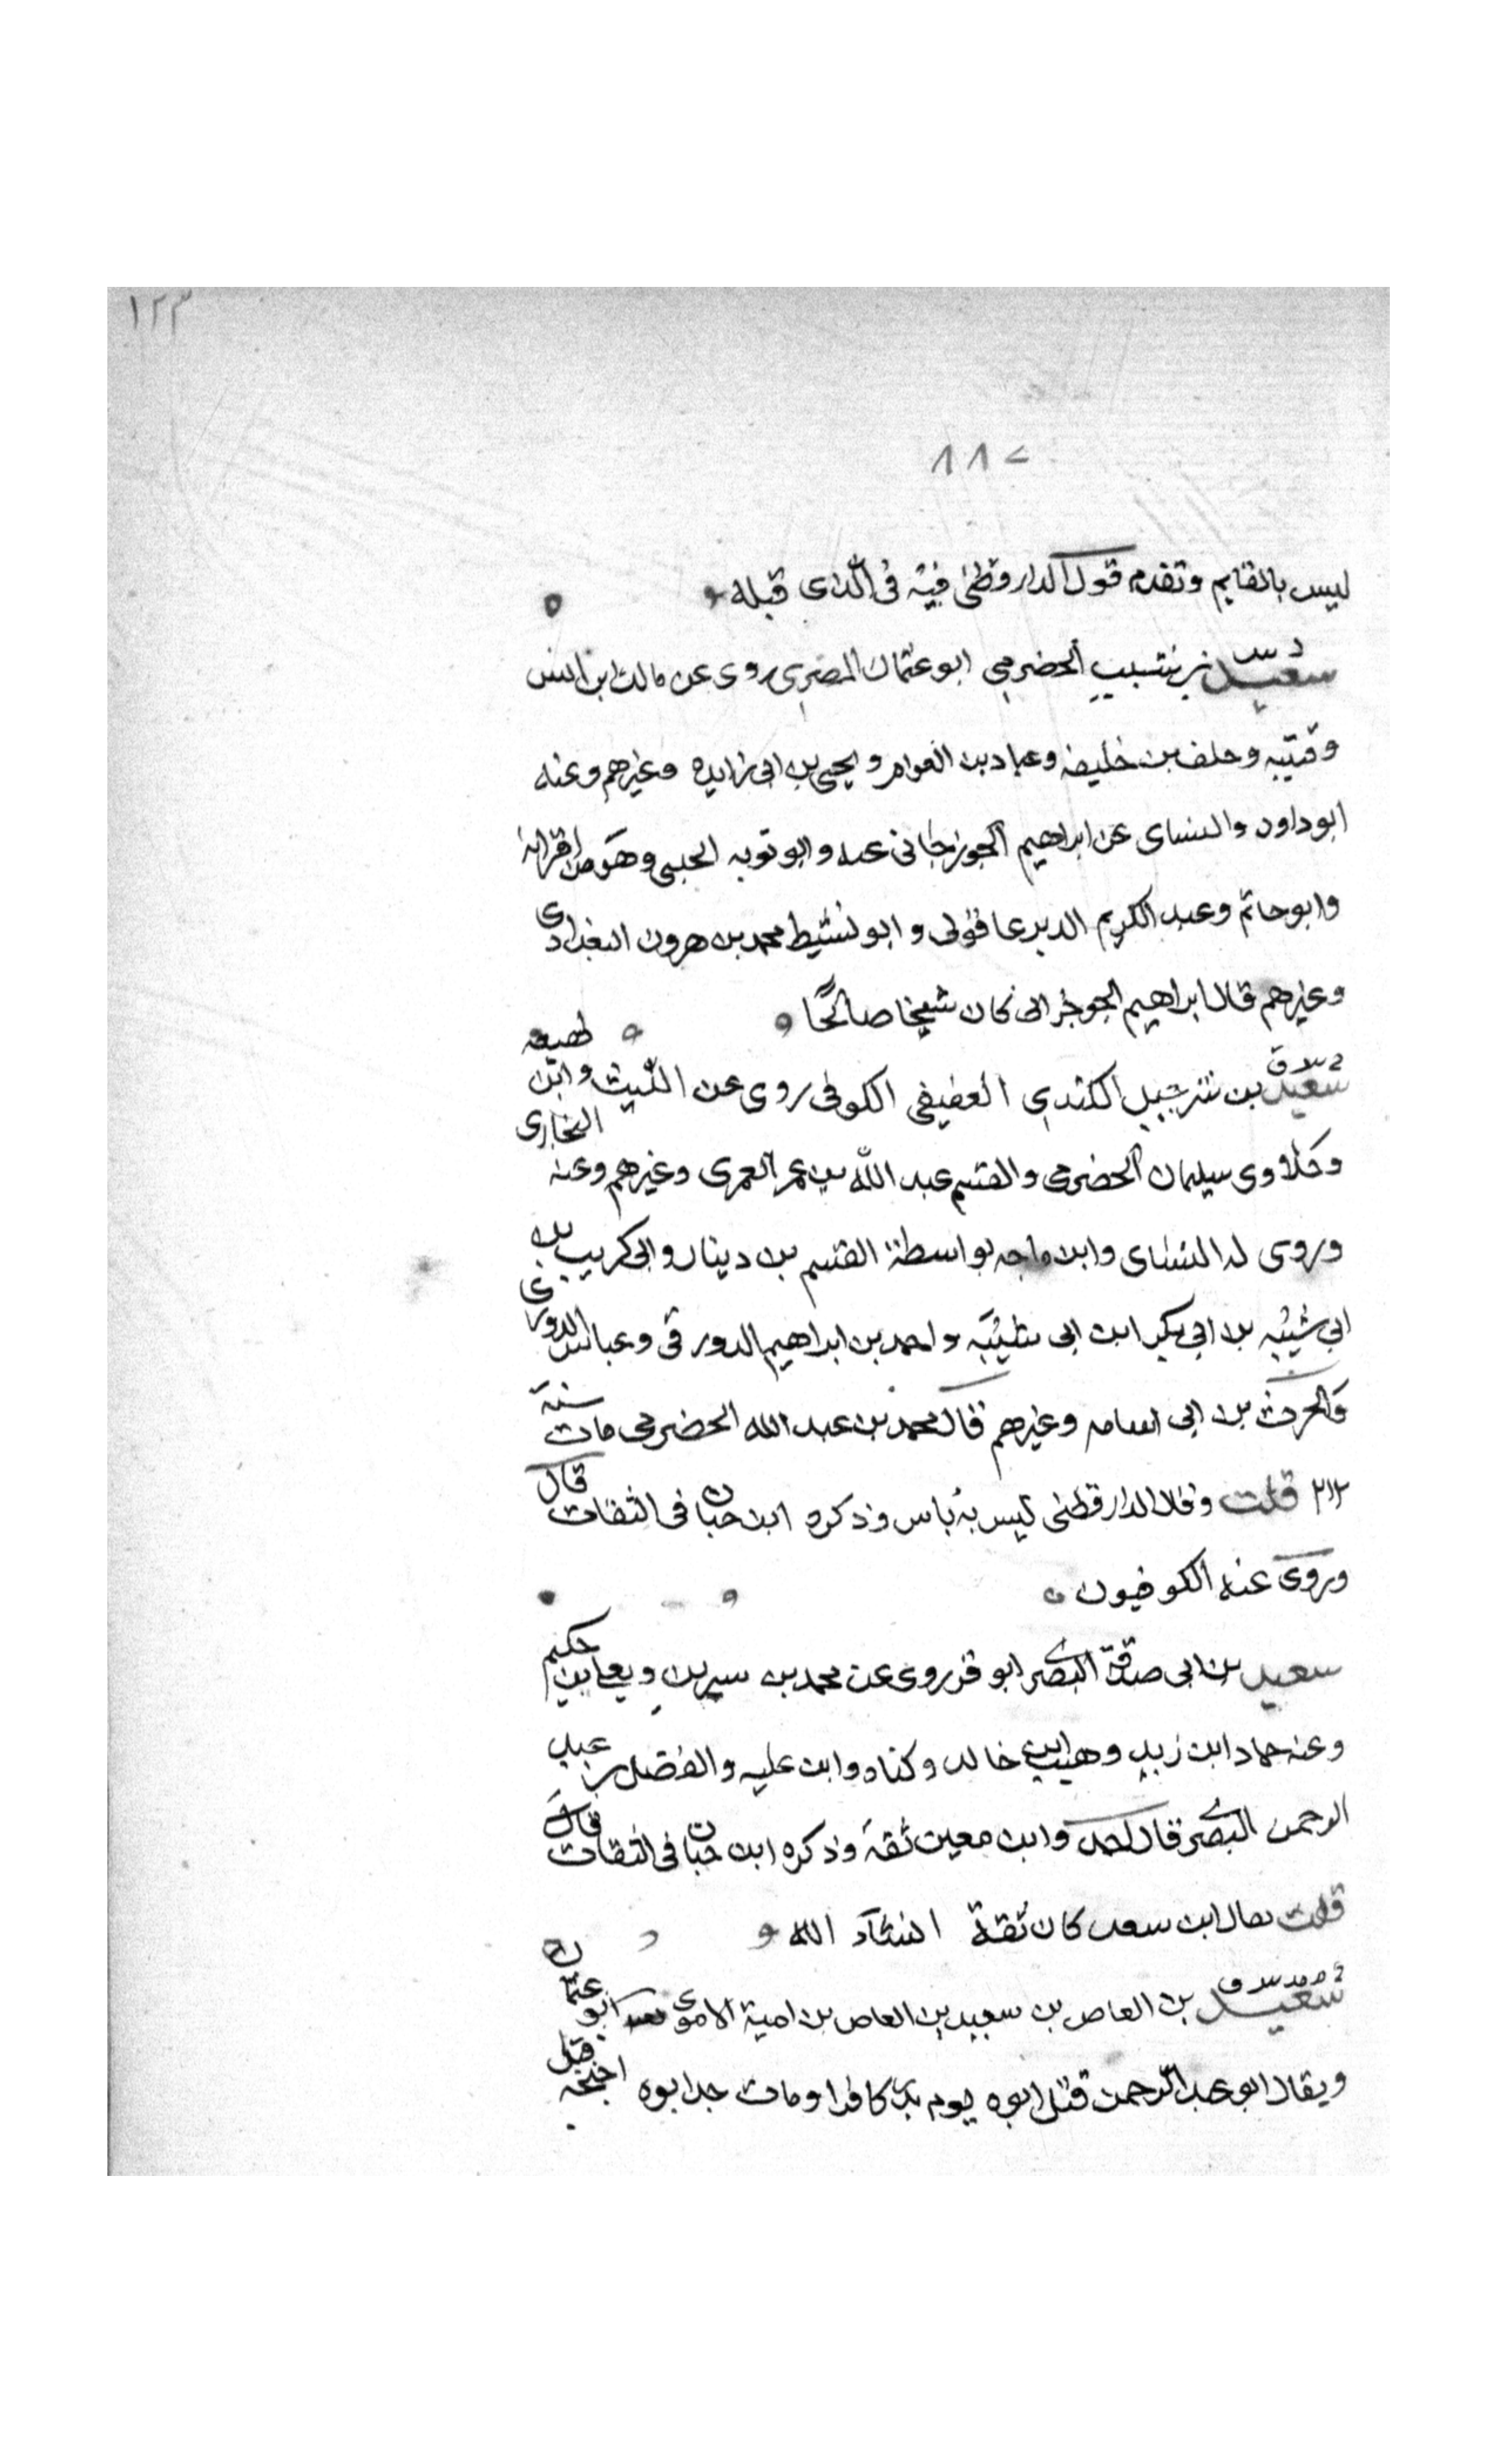 ١٢٣
١١٢
ليس بالقايم وتقدم قول الدارقطني فيه في الذي قبله
د س
سعيد بن شبيب الحضرمي ابو عثمان المصري روى عن مالك ابن انس
وقتيبه وخلف بن خليفه وعباد بن العوام ويحيى بن ابي زايده وغيرهم وعنه
ابو داود والنساى عن ابراهيم الجوزجاني عنه وابو توبه الحلبي وهو من اقرانه
وابو حاتم وعبد الكريم الديرعاقولى وابو نشيط محمد بن هرون البغدادى
وغيرهم قال ابراهيم الجوزجانى كان شيخا صالحًا
خ س ق
سعيد بن شرحبيل الكندي العفيفي الكوفى روى عن الليث وابن لهيعه
وخلاد بن سليمان الحضرمى والقسم عبد الله بن عمر العمرى وغيرهم وعنه البخارى
وروى له النساى وابن ماجه بواسطة القسم بن دينار وابي كريب بن
ابي شيبه بن ابي بكر ابن ابى شيبه واحمد بن ابراهيم الدورقى وعباس الدورى
والحرث بن ابى اسامه وغيرهم قال محمد بن عبد الله الحضرمى مات سنة
٢١٢ قلت وقال الدارقطنى ليس به باس وذكره ابن حبان فى الثقات قال
وروى عنه الكوفيون
سعيد بن ابى صدقة البصرى ابو قره روى عن محمد بن سيرين ويعلى بن حكيم
وعنه حماد ابن زيد وهيب ابن خالد وابن عليه والفضل بن عبد
الرحمن البصرى قال احمد وابن معين ثقة وذكره ابن حبان فى الثقات قال
قلت قال ابن سعد كان ثقة انشاء الله
سعيد بن العاص بن سعيد بن العاص بن امية الاموى ابو عثمان
ويقال ابو عبد الرحمن قتل ابوه يوم بدر كافرا ومات جد ابوه قبل